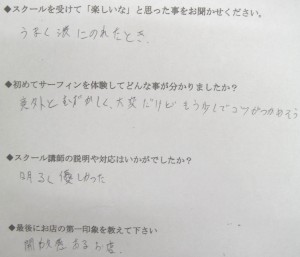 ◆スクールを受けて「楽しいな」と思った事をお聞かせください。
うまく波にのれたとき
◆初めてサーフィンを体験してどんな事が分かりましたか?
意外とむずかしく、大変だけど もう少しでコツがつかめそう
◆スクール講師の説明や対応はいかがでしたか?
明るく優しかった
◆最後にお店の第一印象を教えて下さい
開放感あるお店。